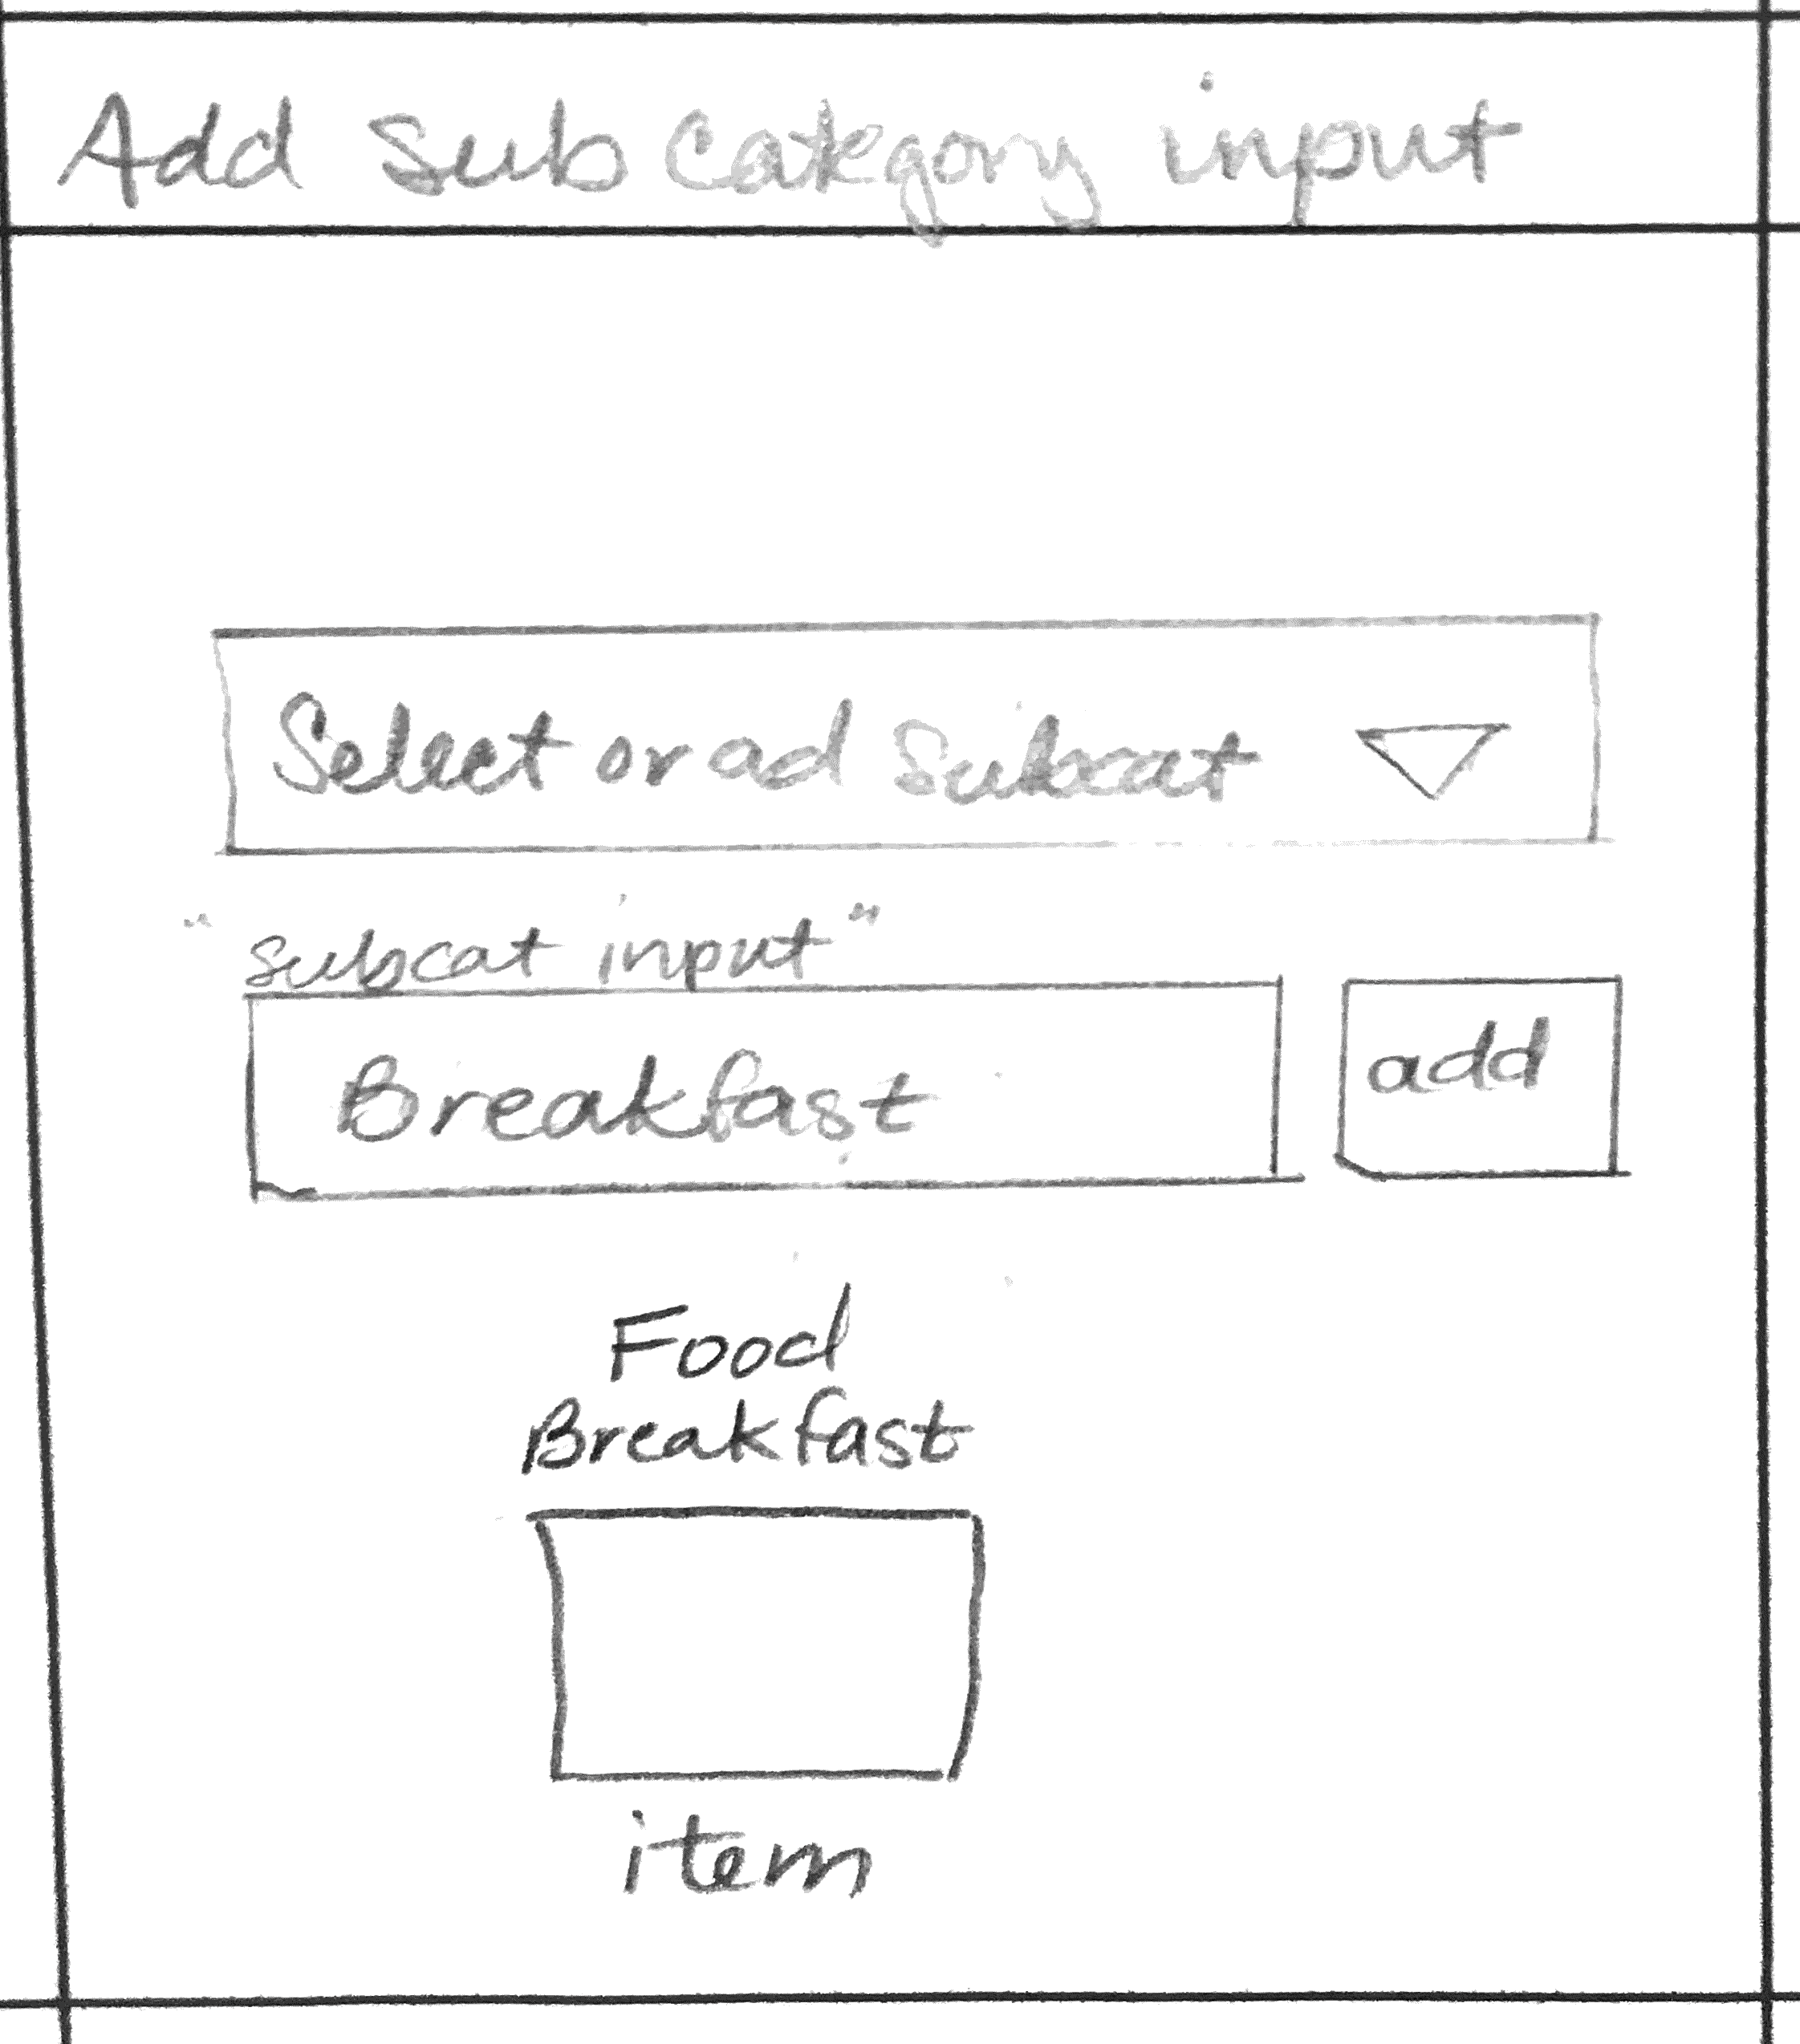 Add sub category input
Select or ad subcat
"subcat input"
Breakfast
add
Food
Breakfast
item